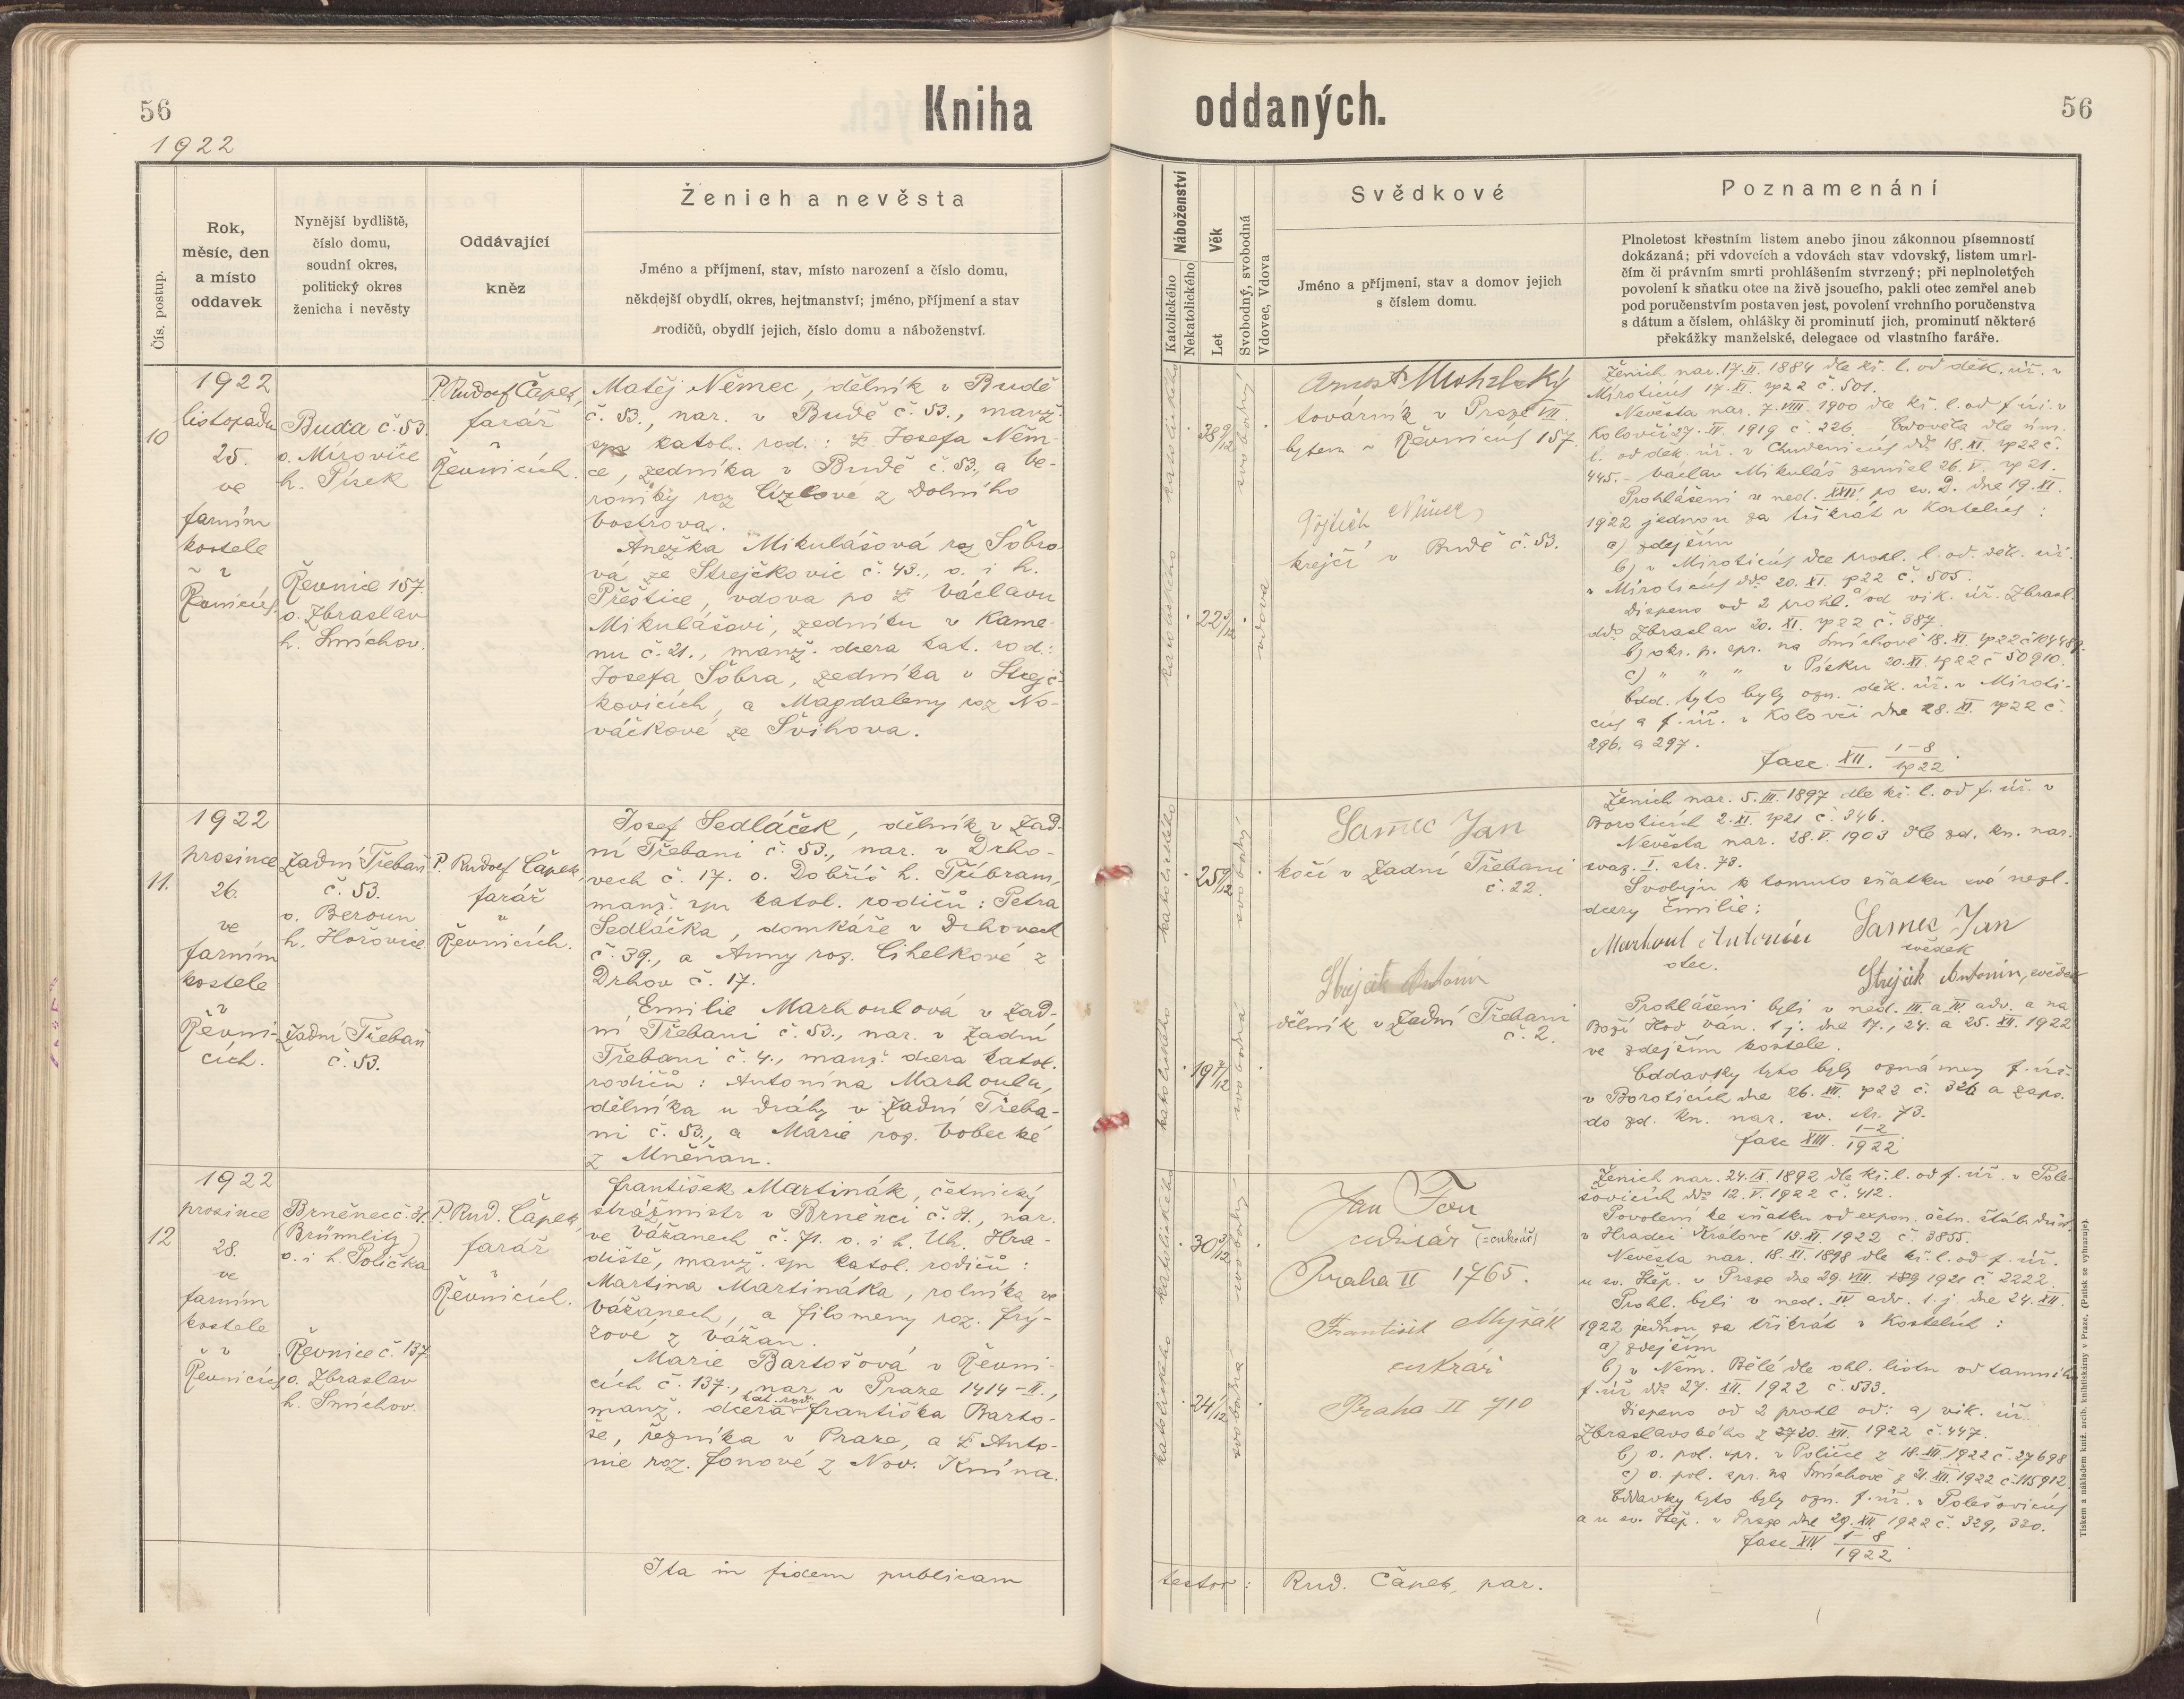 56
Kniha
1922
Čís. postup.
Rok,
měsíc, den
a místo
oddavek
Nynější bydliště,
číslo domu,
soudní okres,
politický okres
ženicha i nevěsty
Oddávající
kněz
Ženich a nevěsta
Jméno a příjmení, stav, místo narození a číslo domu,
někdejší obydlí, okres, hejtmanství; jméno, příjmení a stav
rodičů, obydlí jejich, číslo domu a náboženství.
10
1922
listopadu
25.
ve
farním
kostele
v
Řevnicích.
Buda č. 53.
o. Mirovice
h. Písek
Řevnice 157.
o. Zbraslav
h. Smíchov.
P. Rudolf Čápek,
farář
v
Řevnicích.
Matěj Němec, dělník v Budě
č. 53., nar. v Budě č. 53., manž.
syn katol. rod.: † Josefa Něm-
ce, zedníka v Budě č. 53., a Ve-
roniky roz. Cízlové z Dolního
Vostrova.
Anežka Mikulášová roz. Šobro-
vá ze Strejčkovic č. 43., o. i h.
Přeštice, vdova po † Václavu
Mikulášovi, zedníku v Kame-
nu č. 21., manž. dcera kat. rod.:
Josefa Šobra, zedníka v Strejč-
kovicích, a Magdaleny roz. No-
váčkové ze Švihova.
11.
1922
prosince
26.
ve
farním
kostele
v
Řevni-
cích.
Zadní Třebaň
č. 53.
o. Beroun
h. Hořovice
Zadní Třebaň
č. 53.
P. Rudolf Čápek,
farář
v
Řevnicích.
Josef Sedláček, dělník v Zad-
ní Třebani č. 53., nar. v Drho-
vech č. 17. o. Dobříš h. Příbram,
manž. syn katol. rodičů: Petra
Sedláčka, domkáře v Drhovech
č. 39., a Anny roz. Cihelkové z
Drhov č. 17.
Emilie Marhoulová v Zad-
ní Třebani č. 53., nar. v Zadní
Třebani č. 4., manž. dcera katol.
rodičů: Antonína Marhoula,
dělníka u dráhy v Zadní Třeba-
ni č. 53., a Marie roz. Vobecké
z Mněňan.
12
1922
prosince
28.
ve
farním
kostele
v
Řevnicích
Brněnec č. 31.
(Brünnlitz)
o. i h. Polička
Řevnice č. 137.
o. Zbraslav
h. Smíchov.
P. Rud. Čápek,
farář
v
Řevnicích.
František Martinák, četnický
strážmistr v Brněnci č. 31., nar.
ve Vážanech č. 71. o. i h. Uh. Hra-
diště, manž. syn katol. rodičů:
Martina Martináka, rolníka ve
Vážanech, a Filomeny roz. Frý-
zové z Vážan.
Marie Bartošová v Řevni-
cích č. 137., nar. v Praze 1414-II.,
manž. dcera kat. rod. Františka Barto-
še, řezníka v Praze, a † Anto-
nie roz. Fonové z Nov. Knína.
Ita in fidem publicam
oddaných.
56
Náboženství
Katolického
Nekatolického
Věk
Let
Svobodný, svobodná
Vdovec, Vdova
Svědkové
Jméno a příjmení, stav a domov jejich
s číslem domu.
Poznamenání
Plnoletost křestním listem anebo jinou zákonnou písemností
dokázaná; při vdovcích a vdovách stav vdovský, listem umrl-
čím či právním smrti prohlášením stvrzený; při neplnoletých
povolení k sňatku otce na živě jsoucího, pakli otec zemřel aneb
pod poručenstvím postaven jest, povolení vrchního poručenstva
s dátum a číslem, ohlášky či prominutí jich, prominutí některé
překážky manželské, delegace od vlastního faráře.
katolického
38 9/12
svobodný
katolického
22 3/12
vdova
továrník v Praze VII.
bytem v Řevnicích 157.
Vojtěch Němec,
krejčí v Budě č. 53.
Ženich nar. 17. II. 1884 dle kř. l. od děk. úř. v
Miroticích 17. XI. 1922 č. 501.
Nevěsta nar. 7. VIII. 1900 dle kř. l. od f. úř. v
Kolovči 27. IV. 1919 č. 226. Ovdověla dle úm.
l. od děk. úř. v Chudenicích ddo 18. XI. 1922 č.
445. – Václav Mikuláš zemřel 26. V. 1921.
Prohlášeni v ned. XXIV. po sv. D. dne 19. XI.
1922 jednou za třikrát v kostelích:
a) zdejším
b) v Miroticích dle prohl. l. od děk. úř.
v Miroticích ddo 20. XI. 1922 č. 505.
Dispens od 2 prohl. a) od vik. úř. Zbrasl.
ddo Zbraslav 20. XI. 1922 č. 387.
b) okr. p. spr. na Smíchově 18. XI. 1922 č. 104489.
c) " " " v Písku 20. XI. 1922 č. 50910.
Odd. tyto byly ozn. děk. úř. v Miroti-
cích a f. úř. v Kolovči dne 28. XI. 1922 č.
296. a 297.
fasc. XII. 1–8/1922.
katolického
25 9/12
svobodný
katolického
19 7/12
svobodná
Samec Jan
kočí v Zadní Třebani
č. 22.
Strejček Antonín
dělník v Zadní Třebani
č. 2.
Ženich nar. 5. III. 1897 dle kř. l. od f. úř. v
Boroticích 2. XI. 1921 č. 346.
Nevěsta nar. 28. V. 1903 dle zd. kn. nar.
svaz. I. str. 73.
Svoluji k tomuto sňatku své nezl.
dcery Emilie:
Marhoul Antonín
otec.
Samec Jan
svědek
Strejček Antonín, svědek
Prohlášeni byli v ned. III. a IV. adv. a na
Boží Hod ván. t. j. dne 17., 24. a 25. XII. 1922
ve zdejším kostele.
Oddavky tyto byly oznámeny f. úř.
v Boroticích dne 26. XII. 1922 č. 326 a zaps.
do zd. kn. nar. sv. str. 73.
fasc XIII. 1–2/1922.
katolického
30 3/12
svobodný
katolického
24 1/12
svobodná
Jan Fon
cukrář (=cukrář)
Praha II 1765.
František Myšák
cukrář
Praha II 710
Ženich nar. 24. IX. 1892 dle kř. l. od f. úř. v Pole-
šovicích ddo 12. V. 1922 č. 412.
Povolení ke sňatku od expon. četn. štáb. důst.
v Hradci Králové 13. XI. 1922 č. 3855.
Nevěsta nar. 18. XI. 1898 dle kř. l. od f. úř.
u sv. Štěp. v Praze dne 29. VIII. 1921 č. 2222.
Prohl. byli v ned. IV. adv. t. j. dne 24. XII.
1922 jednou za třikrát v kostelích:
a) zdejším
b) v Něm. Bělé dle ohl. listu od tamního
f. úř. ddo 27. XII. 1922 č. 533.
Dispens od 2 prohl od: a) vik. úř.
Zbraslavského z 20. XII. 1922 č. 447.
b) o. pol. spr. v Poličce z 18. XII. 1922 č. 27698
c) o. pol. spr. na Smíchově z 21. XII. 1922 č. 115912.
Oddavky tyto byly ozn. f. úř. v Polešovicích
a u sv. Štěp. v Praze dne 29. XII. 1922 č. 329, 330.
fasc XIV 1–8/1922.
testor: Rud. Čápek, par.
Tiskem a nákladem kníž. arcib. knihtiskárny v Praze. (Patisk se vyhrazuje).